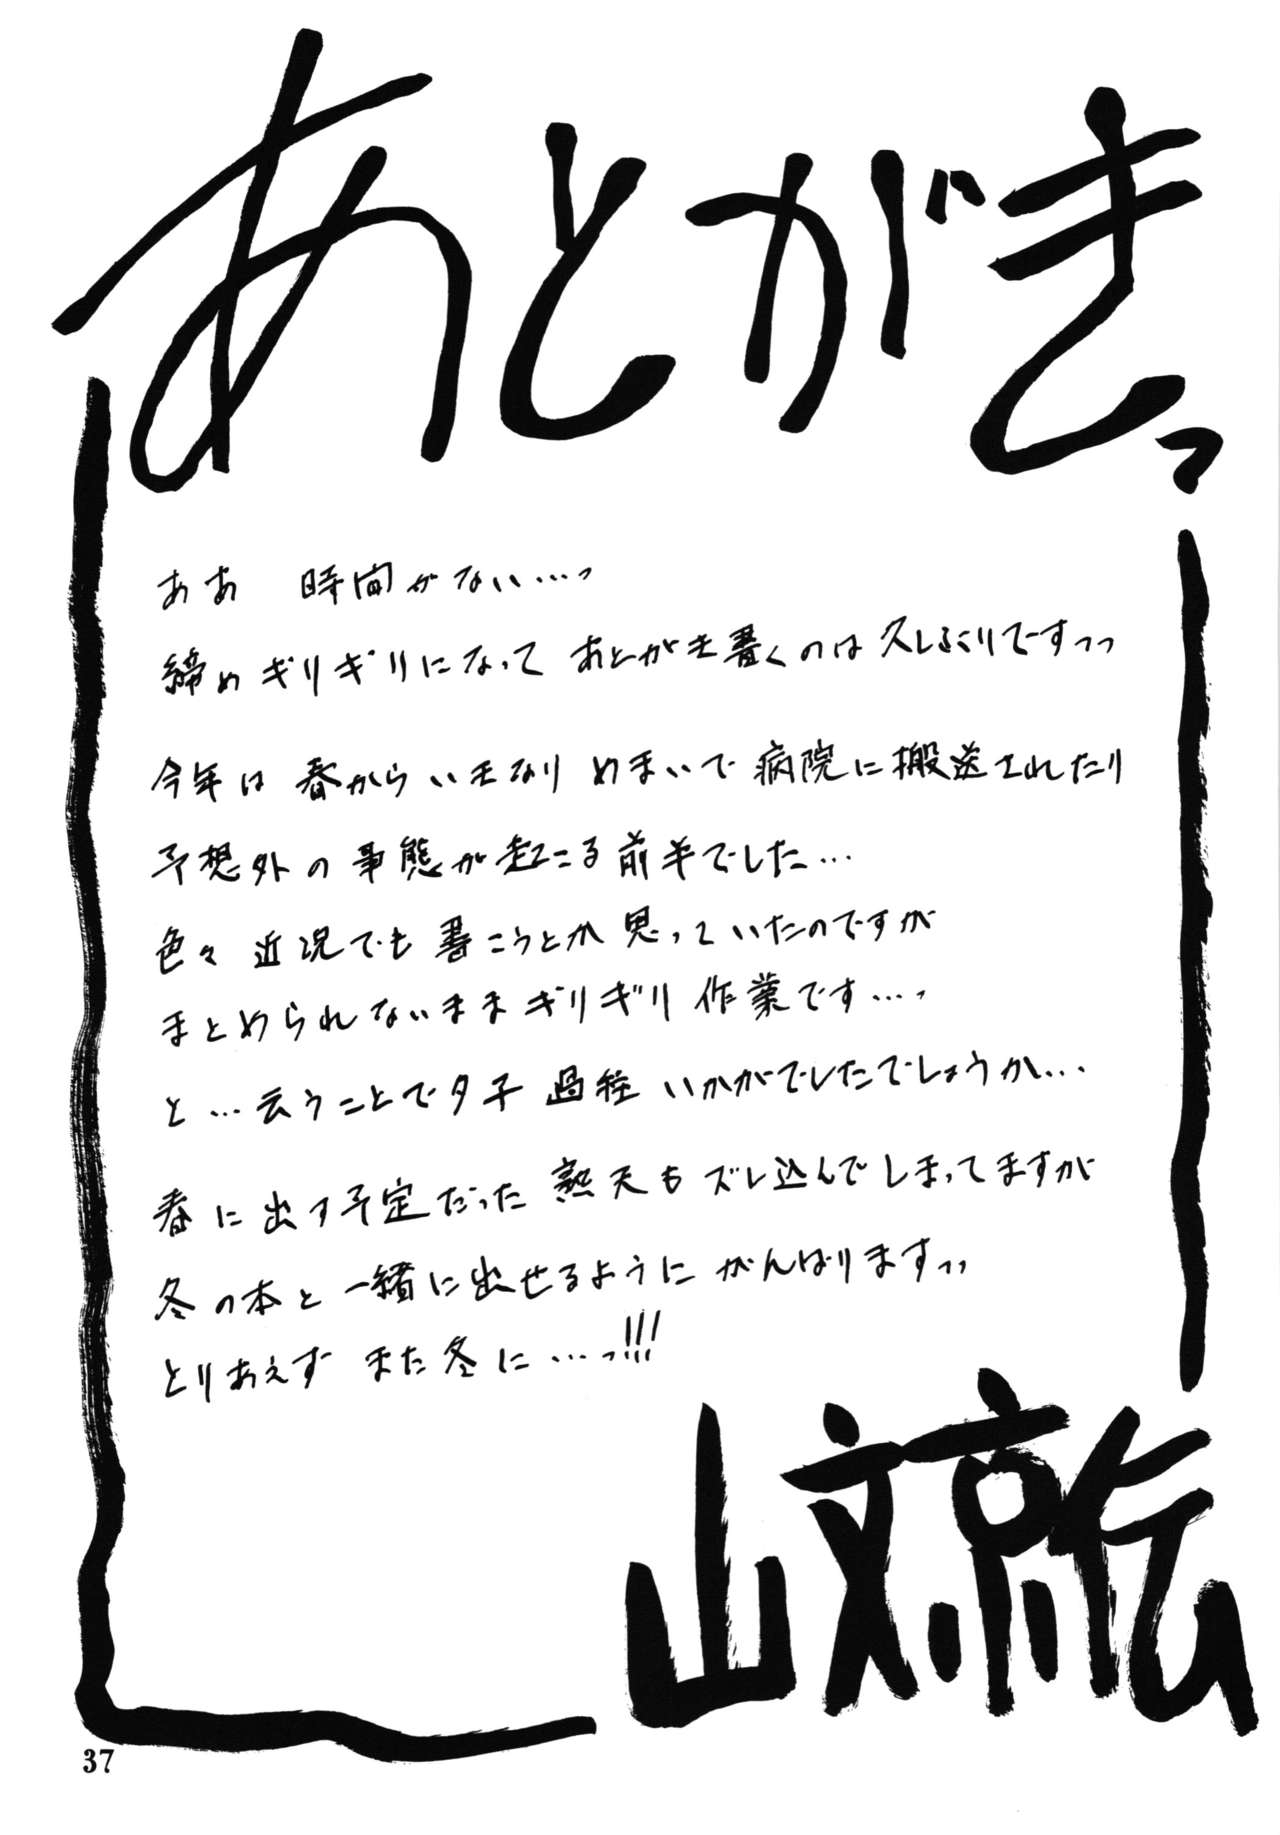 あとがきっ
ああ 時間がない…っ
締めギリギリになって あとがき書くのは 久しぶりですっっ
今年は 春から いきなり めまいで 病院に搬送されたり
予想外の 事態が起こる前半でした…
色々 近況でも 書こうとか 思っていたのですが
まとめられないまま ギリギリ 作業です…っ
と…云うことで 夕子 過程 いかがでしたでしょうか…
春に出す予定だった 熟天も ズレ込んでしまってますが
冬の本と 一緒に出せるように がんばりますっっ
とりあえず また冬に…っ!!!
山文京伝
37